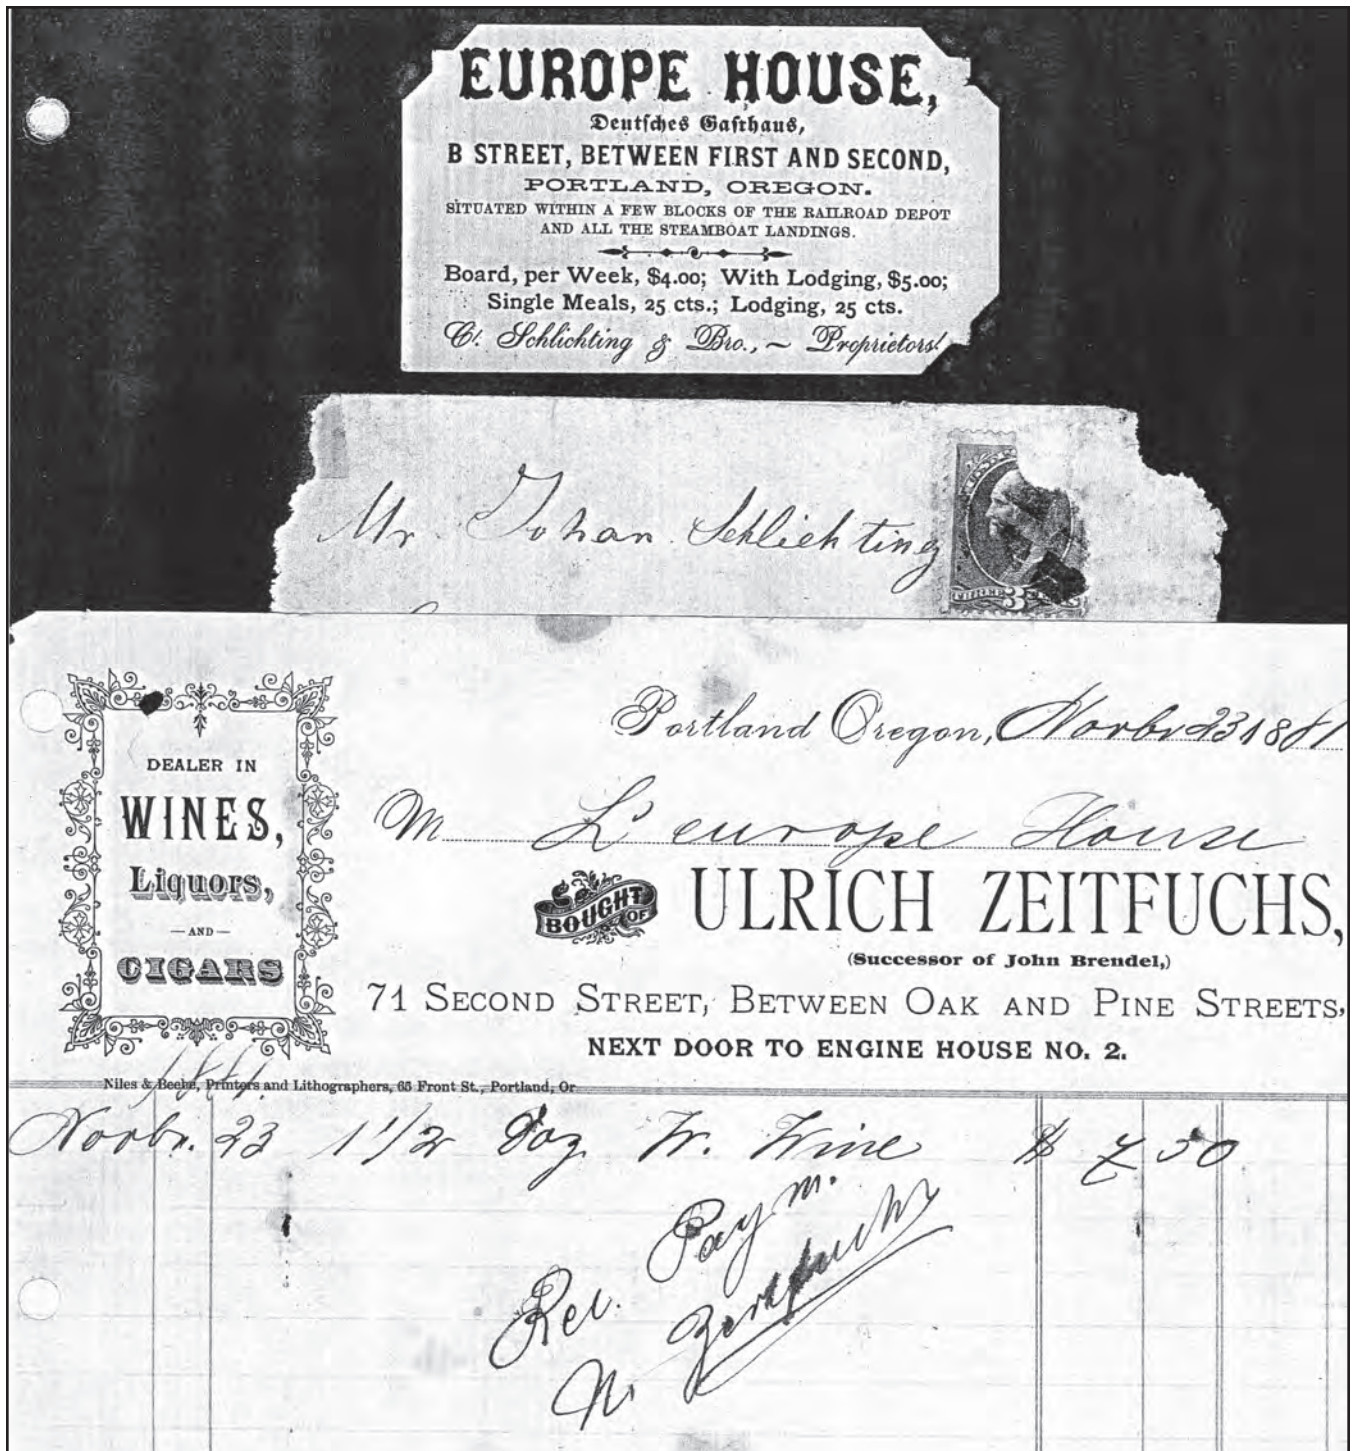 EUROPE HOUSE,
Deutsches Gasthaus,
B STREET, BETWEEN FIRST AND SECOND,
PORTLAND, OREGON.
SITUATED WITHIN A FEW BLOCKS OF THE RAILROAD DEPOT
AND ALL THE STEAMBOAT LANDINGS.
Board, per Week, $4.00; With Lodging, $5.00;
Single Meals, 25 cts.; Lodging, 25 cts.
C. Schlichting & Bro., ~ Proprietors.
Mr. Johan Schlichting
3
Portland Oregon, Novbr 23 1881
M L'europe House
DEALER IN
WINES,
Liquors,
— AND —
CIGARS
BOUGHT OF
ULRICH ZEITFUCHS,
(Successor of John Brendel,)
71 SECOND STREET, BETWEEN OAK AND PINE STREETS,
NEXT DOOR TO ENGINE HOUSE NO. 2.
1881.
Niles & Beebe, Printers and Lithographers, 65 Front St., Portland, Or
Novbr. 23 1 1/2 Doz. W. Wine $ 7 50
Rec. Paym.
U. Zeitfuchs